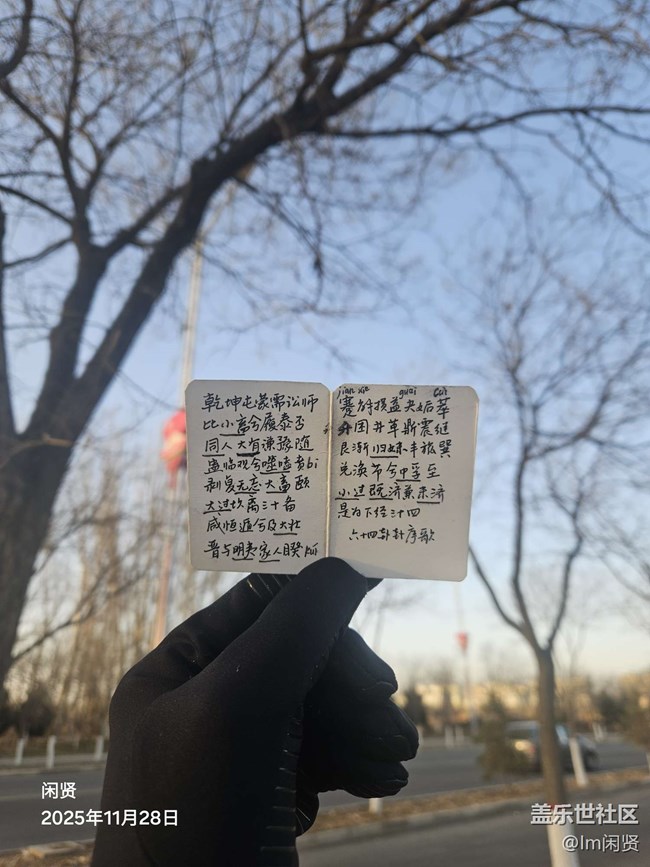 乾坤屯蒙需讼师
比小畜兮履泰否
同人大有谦豫随
蛊临观兮噬嗑贲bi
剥复无忘大畜颐
大过坎离三十备
咸恒遁兮及大壮
晋与明夷家人睽kui
jian xie guai cui
蹇解损益夬姤萃
升困井革鼎震继
艮渐归妹丰旅巽
兑涣节兮中孚至
小过既济兼未济
是为下经三十四
六十四卦卦序歌
闲贤
2025年11月28日
盖乐世社区
@Im闲贤